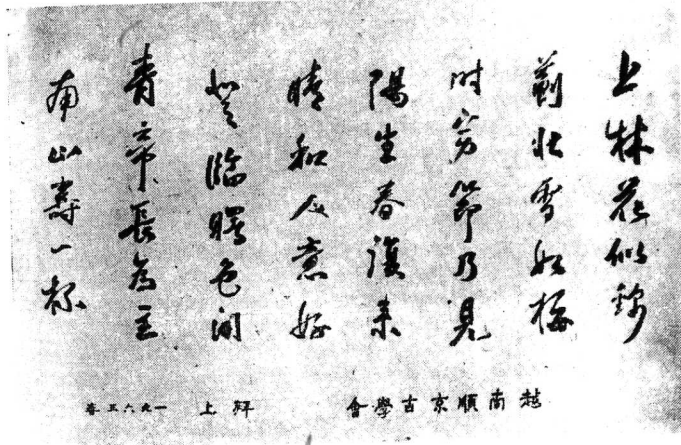 上林花似錦
薊北雪如梅
時窮節乃見
陽生春復來
晴和人意好
登臨曙色開
青帝長為主
南山壽一杯
越南順京古學會 拜上 一九六五春